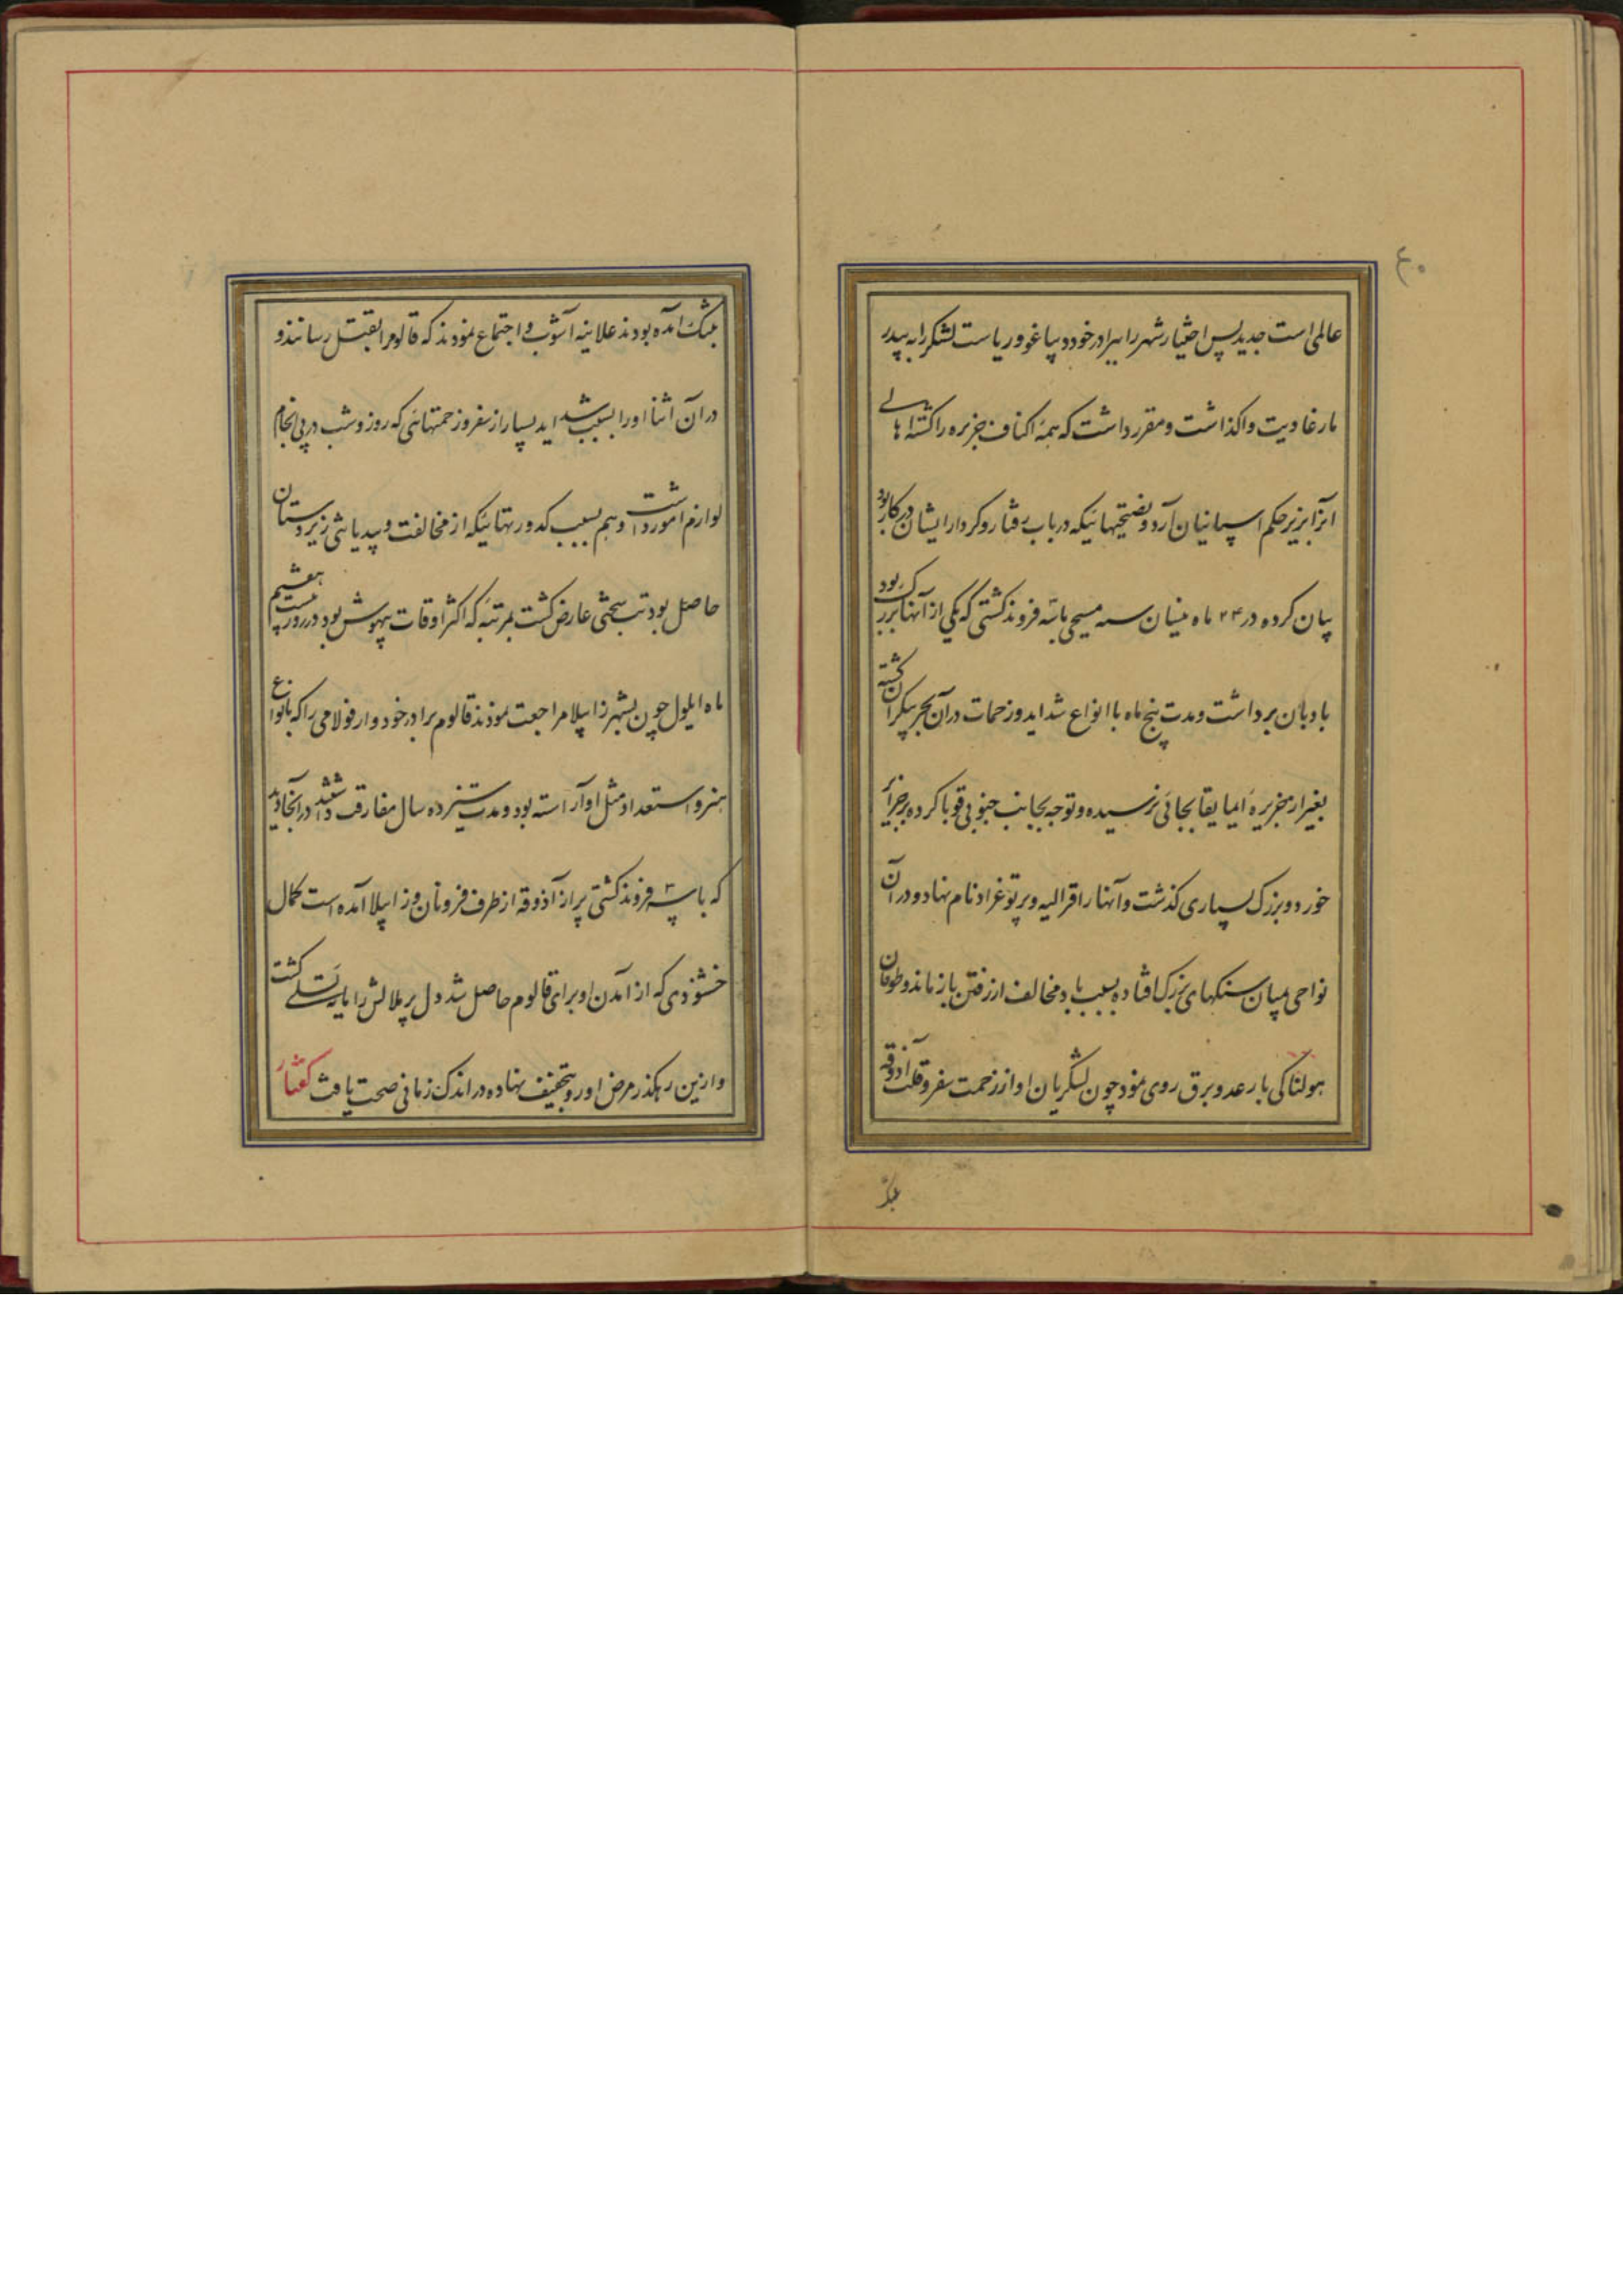 ۴۰
عالمی است جدید پس اختیار شهر را ببرادر خود دیاغو و ریاست لشکر را به پیدر
مارغاریت واگذاشت و مقرر داشت که همه اکناف جزیره را گشته اهالی
انرا بزیر حکم اسپانیان آرد و نصیحتهائیکه در باب رفتار و کردار ایشان در کار بود
بیان کرده در ۲۴ ماه نیسان سنه مسیحی با سه فروند کشتی که یکی از آنها بزرگ بود
بادبان برداشت و مدت پنج ماه با انواع شداید و زحمات در آن بحر بیکران گشته
بغیر از جزیره ایمایقا بجائی نرسیده و توجه بجانب جنوبی قوبا کرده بر جزایر
خورد و بزرگ بسیاری گذشت و آنها را قرالیه و برتوغراد نام نهاد و در آن
نواحی میان سنگهای بزرگ افتاده بسبب باد مخالف از رفتن باز ماند و طوفان
هولناکی با رعد و برق روی نمود چون لشکریان او از زحمت سفر و قلت آذوقه
بتنگ آمده بودند علانیه آشوب و اجتماع نمودند که قالوم را بقتل رسانند و
در آن اثنا او را بسبب شداید بسیار از سفر و زحمتهائی که روز و شب در پی انجام
لوازم امور داشت و هم بسبب کدورتهائیکه از مخالفت و بیدیانتی زیردستان
حاصل بود تب سختی عارض گشت بمرتبه که اکثر اوقات بیهوش بود در روز بیست هفتم
ماه ایلول چون بشهر زابیلا مراجعت نمودند قالوم برادر خود وارفولامی را که بانواع
هنر و استعداد مثل او آراسته بود و مدت سیزده سال مفارقت داشتند در آنجا دید
که با سه فروند کشتی پر از آذوقه از طرف فرونان و زابیلا آمده است کمال
خشنودی که از آمدن او برای قالوم حاصل شد دل پر ملالش را مایه تسلی گشت
و ازین رهگذر مرض او رو بتخفیف نهاده در اندک زمانی صحت یافت گفتار